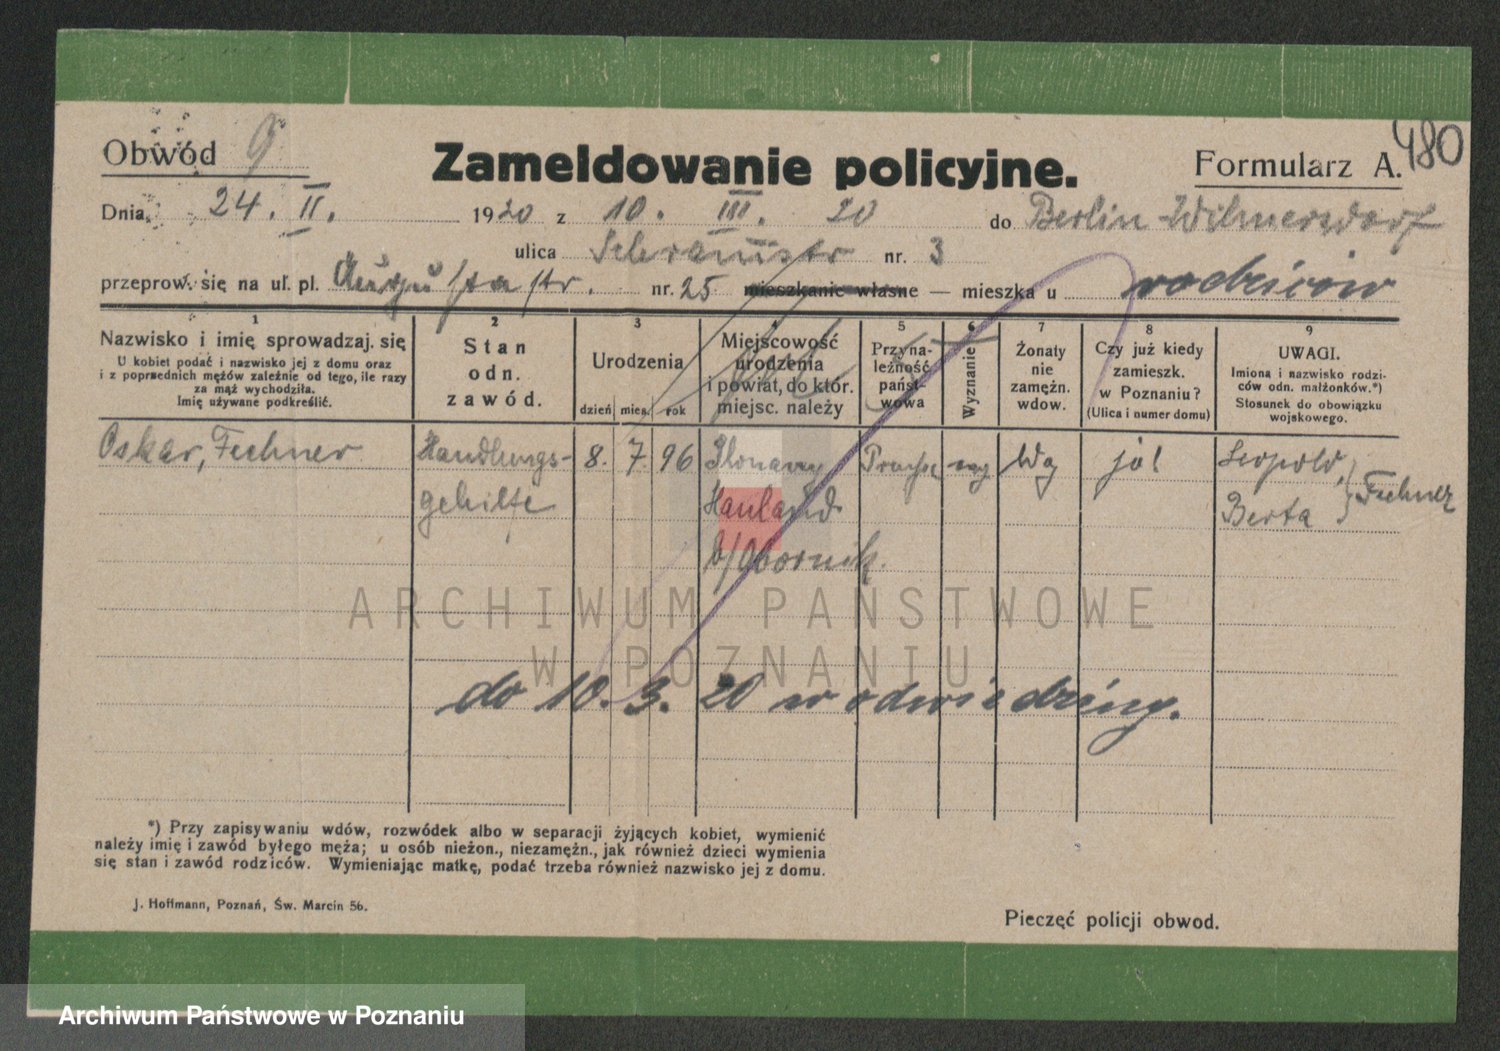 480
Obwód 9
Zameldowanie policyjne.
Formularz A.
Dnia 24. II. 1920 z 10. III. 20 do Berlin-Wilmersdorf
ulica nr. 3
przeprow. się na ul. pl. Augustastr. nr. 25 mieszkanie własne — mieszka u rodziców
1
Nazwisko i imię sprowadzaj. się
U kobiet podać i nazwisko jej z domu oraz
i z poprzednich mężów zależnie od tego, ile razy
za mąż wychodziła.
Imię używane podkreślić.
2
Stan
odn.
zawód.
3
Urodzenia
dzień mies. rok
Miejscowość
urodzenia
i powiat, do któr.
miejsc. należy
5
Przyna-
leżność
państ-
wowa
6
Wyznanie
7
Żonaty
nie
zamężn.
wdow.
8
Czy już kiedy
zamieszk.
w Poznaniu?
(Ulica i numer domu)
9
UWAGI.
Imiona i nazwisko rodzi-
ców odn. małżonków.*)
Stosunek do obowiązku
wojskowego.
Oskar, Fechner Handlungs- 8. 7. 96 ja! Leopold,
gehilfe Hauland Berta } Fechner
Obornik.
ARCHIWUM PAŃSTWOWE
W POZNANIU
do 10. 3. 20 w odwiedziny.
*) Przy zapisywaniu wdów, rozwódek albo w separacji żyjących kobiet, wymienić
należy imię i zawód byłego męża; u osób nieżon., niezamężn., jak również dzieci wymienia
się stan i zawód rodziców. Wymieniając matkę, podać trzeba również nazwisko jej z domu.
J. Hoffmann, Poznań, Św. Marcin 56.
Pieczęć policji obwod.
Archiwum Państwowe w Poznaniu